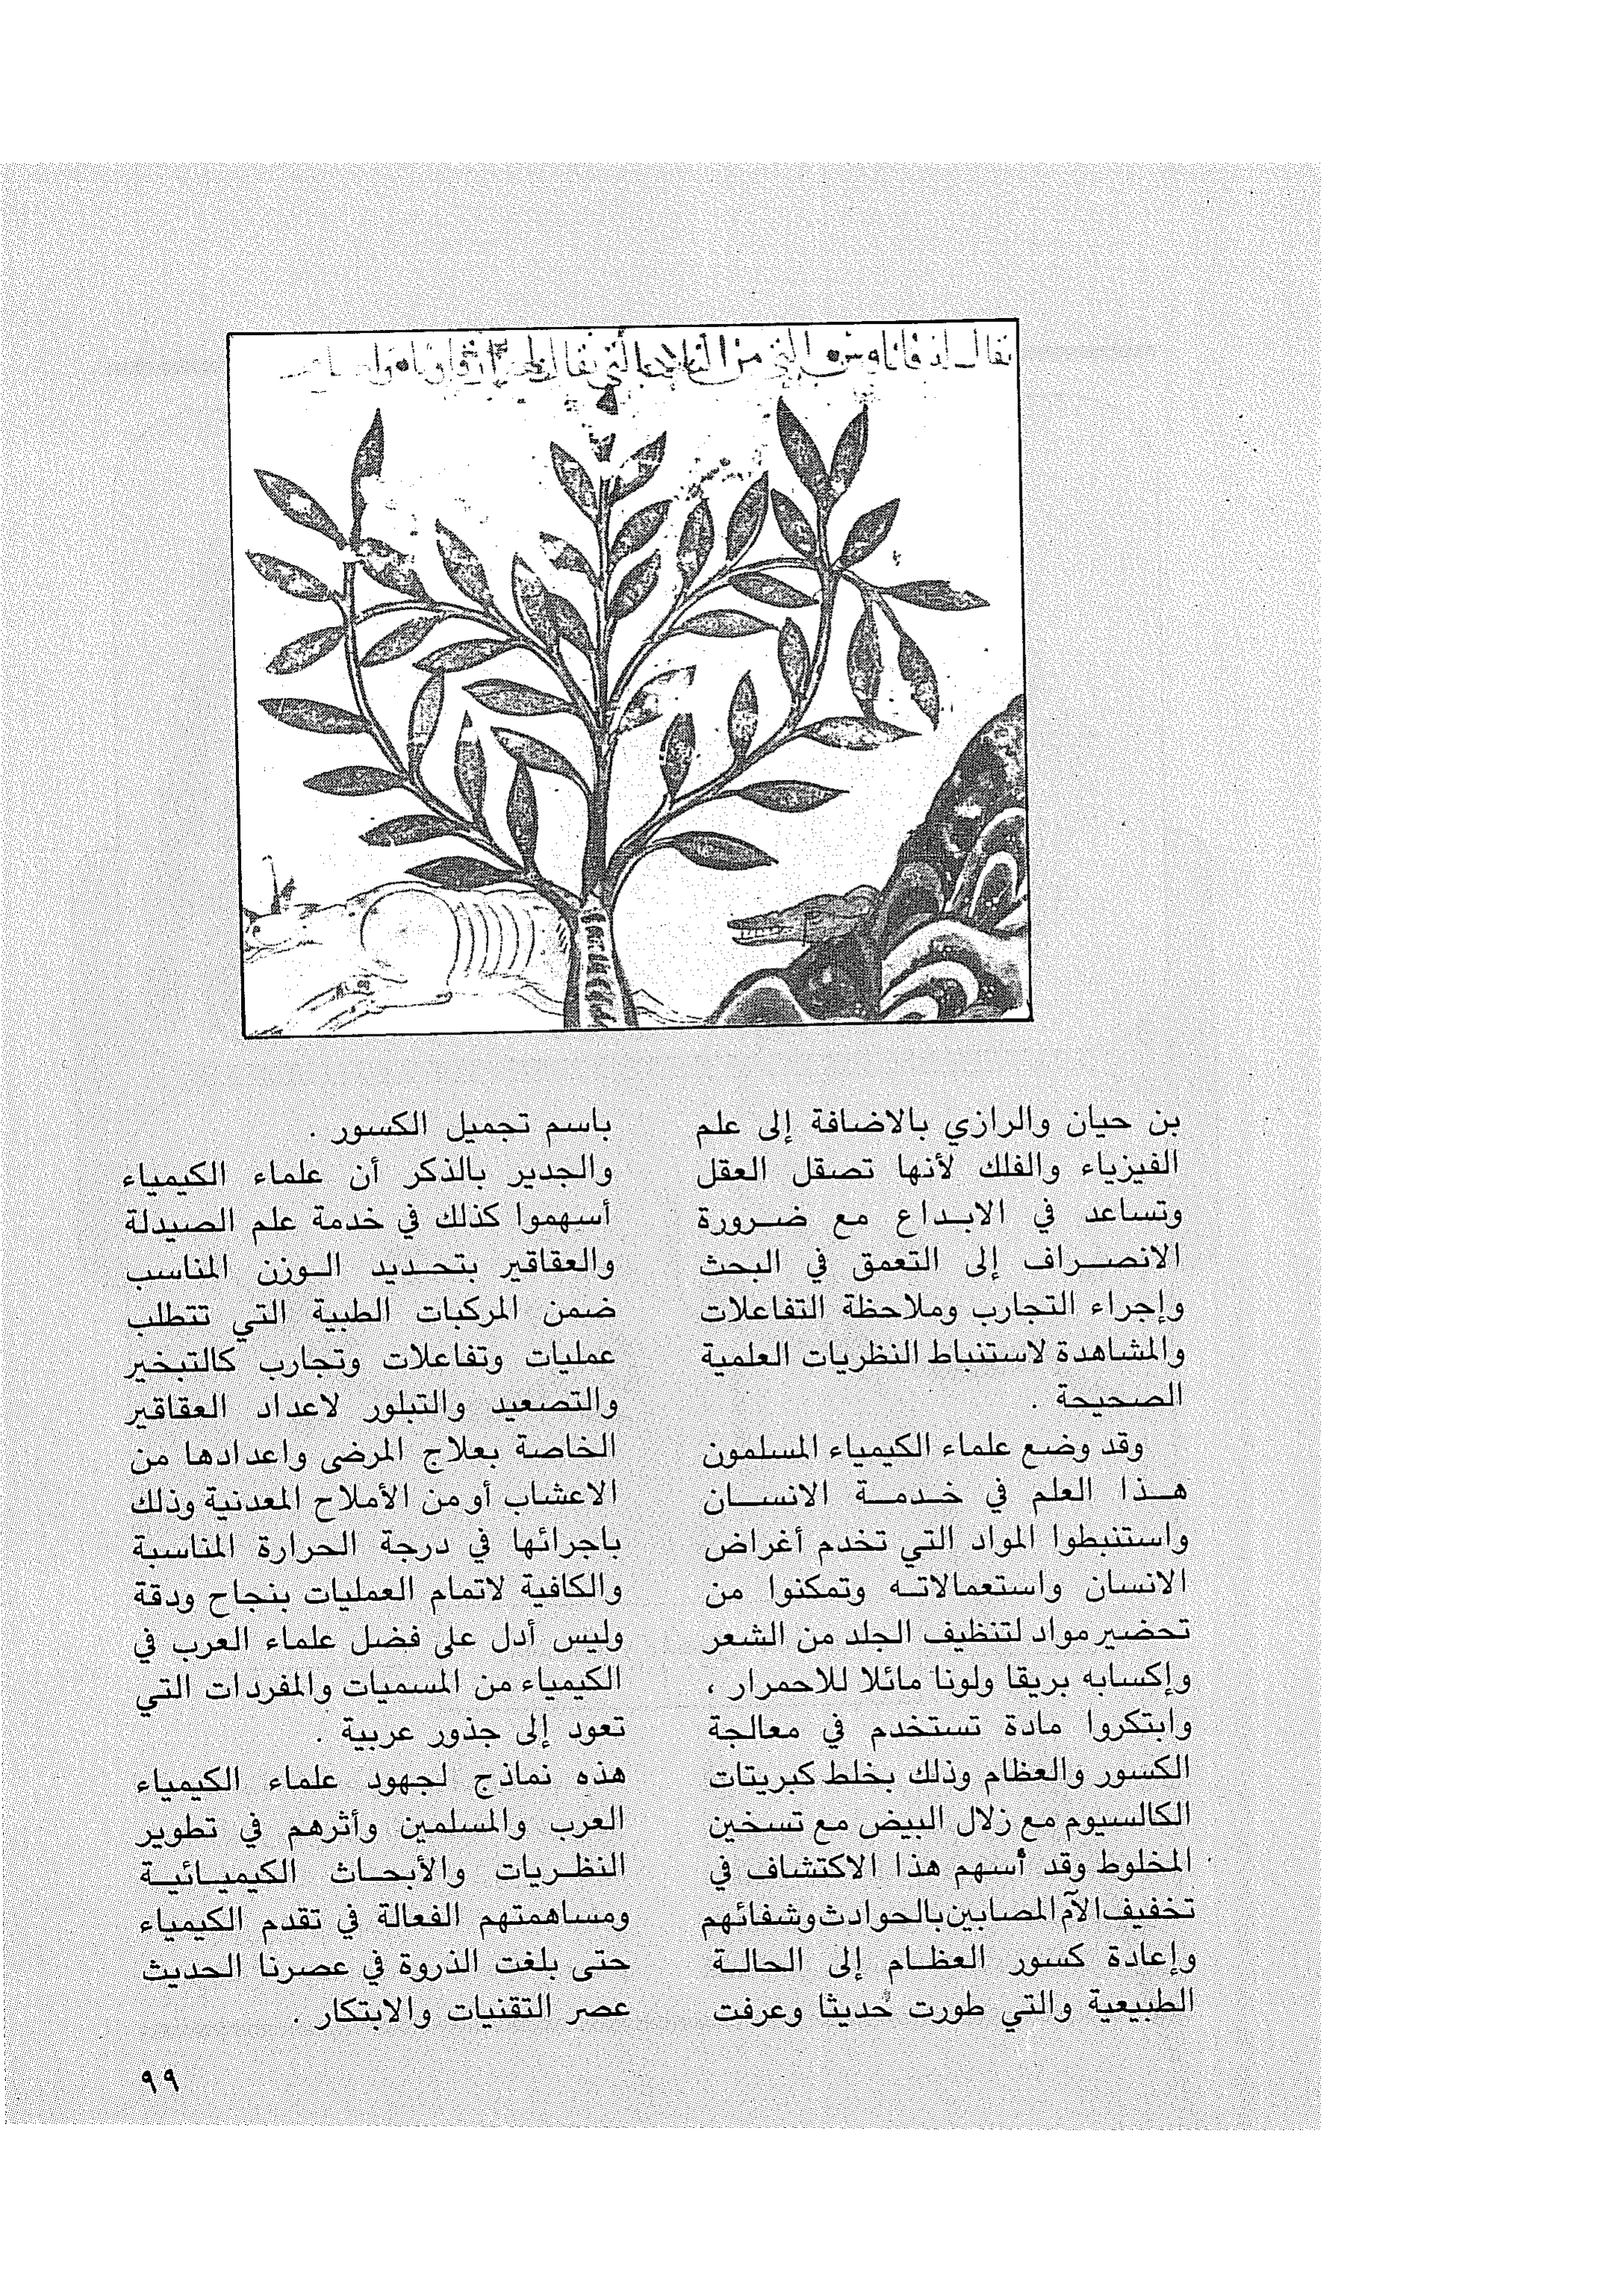 بن حيان والرازي بالاضافة إلى علم
الفيزياء والفلك لأنها تصقل العقل
وتساعد في الابداع مع ضرورة
الانصراف إلى التعمق في البحث
وإجراء التجارب وملاحظة التفاعلات
والمشاهدة لاستنباط النظريات العلمية
الصحيحة .
وقد وضع علماء الكيمياء المسلمون
هذا العلم في خدمة الانسان
واستنبطوا المواد التي تخدم أغراض
الانسان واستعمالاته وتمكنوا من
تحضير مواد لتنظيف الجلد من الشعر
وإكسابه بريقا ولونا مائلا للاحمرار ،
وابتكروا مادة تستخدم في معالجة
الكسور والعظام وذلك بخلط كبريتات
الكالسيوم مع زلال البيض مع تسخين
المخلوط وقد أسهم هذا الاكتشاف في
تخفيف الآم المصابين بالحوادث وشفائهم
وإعادة كسور العظام إلى الحالة
الطبيعية والتي طورت حديثا وعرفت
باسم تجميل الكسور .
والجدير بالذكر أن علماء الكيمياء
أسهموا كذلك في خدمة علم الصيدلة
والعقاقير بتحديد الوزن المناسب
ضمن المركبات الطبية التي تتطلب
عمليات وتفاعلات وتجارب كالتبخير
والتصعيد والتبلور لاعداد العقاقير
الخاصة بعلاج المرضى واعدادها من
الاعشاب أو من الأملاح المعدنية وذلك
باجرائها في درجة الحرارة المناسبة
والكافية لاتمام العمليات بنجاح ودقة
وليس أدل على فضل علماء العرب في
الكيمياء من المسميات والمفردات التي
تعود إلى جذور عربية .
هذه نماذج لجهود علماء الكيمياء
العرب والمسلمين وأثرهم في تطوير
النظريات والأبحاث الكيميائية
ومساهمتهم الفعالة في تقدم الكيمياء
حتى بلغت الذروة في عصرنا الحديث
عصر التقنيات والابتكار .
٩٩